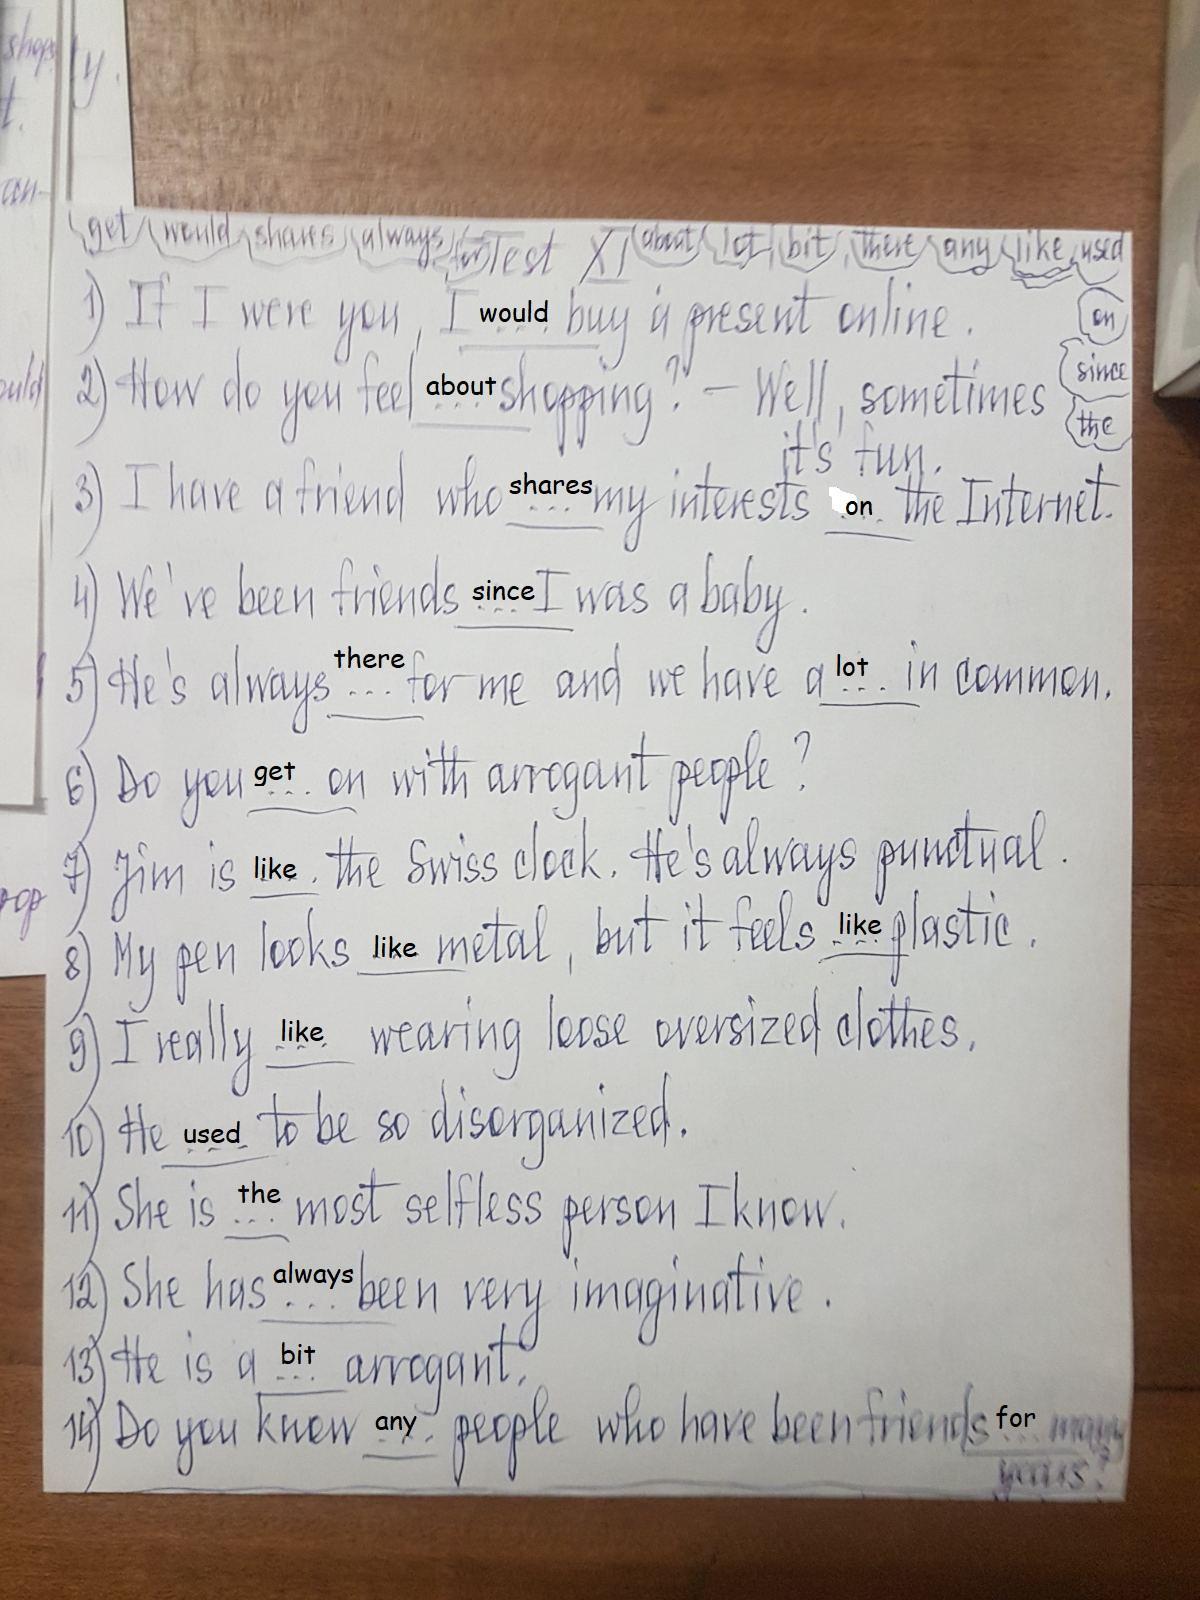 shops
ty.
t.
can-
ould
pop
get would shares always for Test XI about lot bit there any like used
on
since
the
1) If I were you, I would buy a present online.
2) How do you feel about shopping? – Well, sometimes
it's fun.
3) I have a friend who shares my interests on the Internet.
4) We've been friends since I was a baby.
5) He's always there for me and we have a lot in common.
6) Do you get on with arrogant people?
7) Jim is like the Swiss clock. He's always punctual.
8) My pen looks like metal, but it feels like plastic.
9) I really like wearing loose oversized clothes.
10) He used to be so disorganized.
11) She is the most selfless person I know.
12) She has always been very imaginative.
13) He is a bit arrogant.
14) Do you know any people who have been friends for many
years?